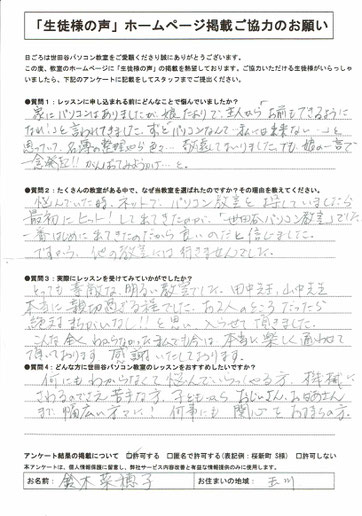 「生徒様の声」ホームページ掲載ご協力のお願い
日ごろは世田谷パソコン教室をご愛顧くださり誠にありがとうございます。
この度、教室のホームページに「生徒様の声」の掲載を熱望しております。ご協力いただける生徒様がいらっしゃ
いましたら、下記のアンケートに記載をしてスタッフまでご提出ください。
●質問1：レッスンに申し込まれる前にどんなことで悩んでいましたか?
家にパソコンはありましたが、娘たよりで、主人から「お前もできるように
なれ」と言われてきました。ずっとパソコンなんて私には出来ない…と
思っていて、名簿の整理やら色々
一念発起!! がんばってみようか…と。
●質問2：たくさんの教室がある中で、なぜ当教室を選ばれたのですか?その理由を教えてください。
悩んでいた時、ネットで、パソコン教室を探していましたら
最初にヒット!して出てきたのが、「世田谷パソコン教室」でした
一番はじめに出てきたのだから良いのだと信じました。
ですから、他の教室には行きませんでした。
●質問3：実際にレッスンを受けてみていかがでしたか?
とっても素敵な、明るい教室でした。田中先生、山中先生
本当に親切過ぎる程でした。
絶対まちがいなし!!と思い入らせて頂きました。
こんな全くわからない私でも今は、本当に楽しく通わせて
頂いております。感謝いたしております。
●質問4：どんな方に世田谷パソコン教室のレッスンをおすすめしたいですか?
何にもわからなくて悩んでいらっしゃる方、機械に
さわるのでさえ苦手な方、子どもから おじいさん、おばあさん
まで幅広い方に!! 何事にも関心をお持ちの方。
アンケート結果の掲載について □許可する □匿名で許可する(表記例：桜新町 S様) □許可しない
本アンケートは、個人情報保護に留意し、弊社サービス内容改善と有益な情報提供のみに使用します。
お名前： 鈴木菜穂子 お住まいの地域： 玉川